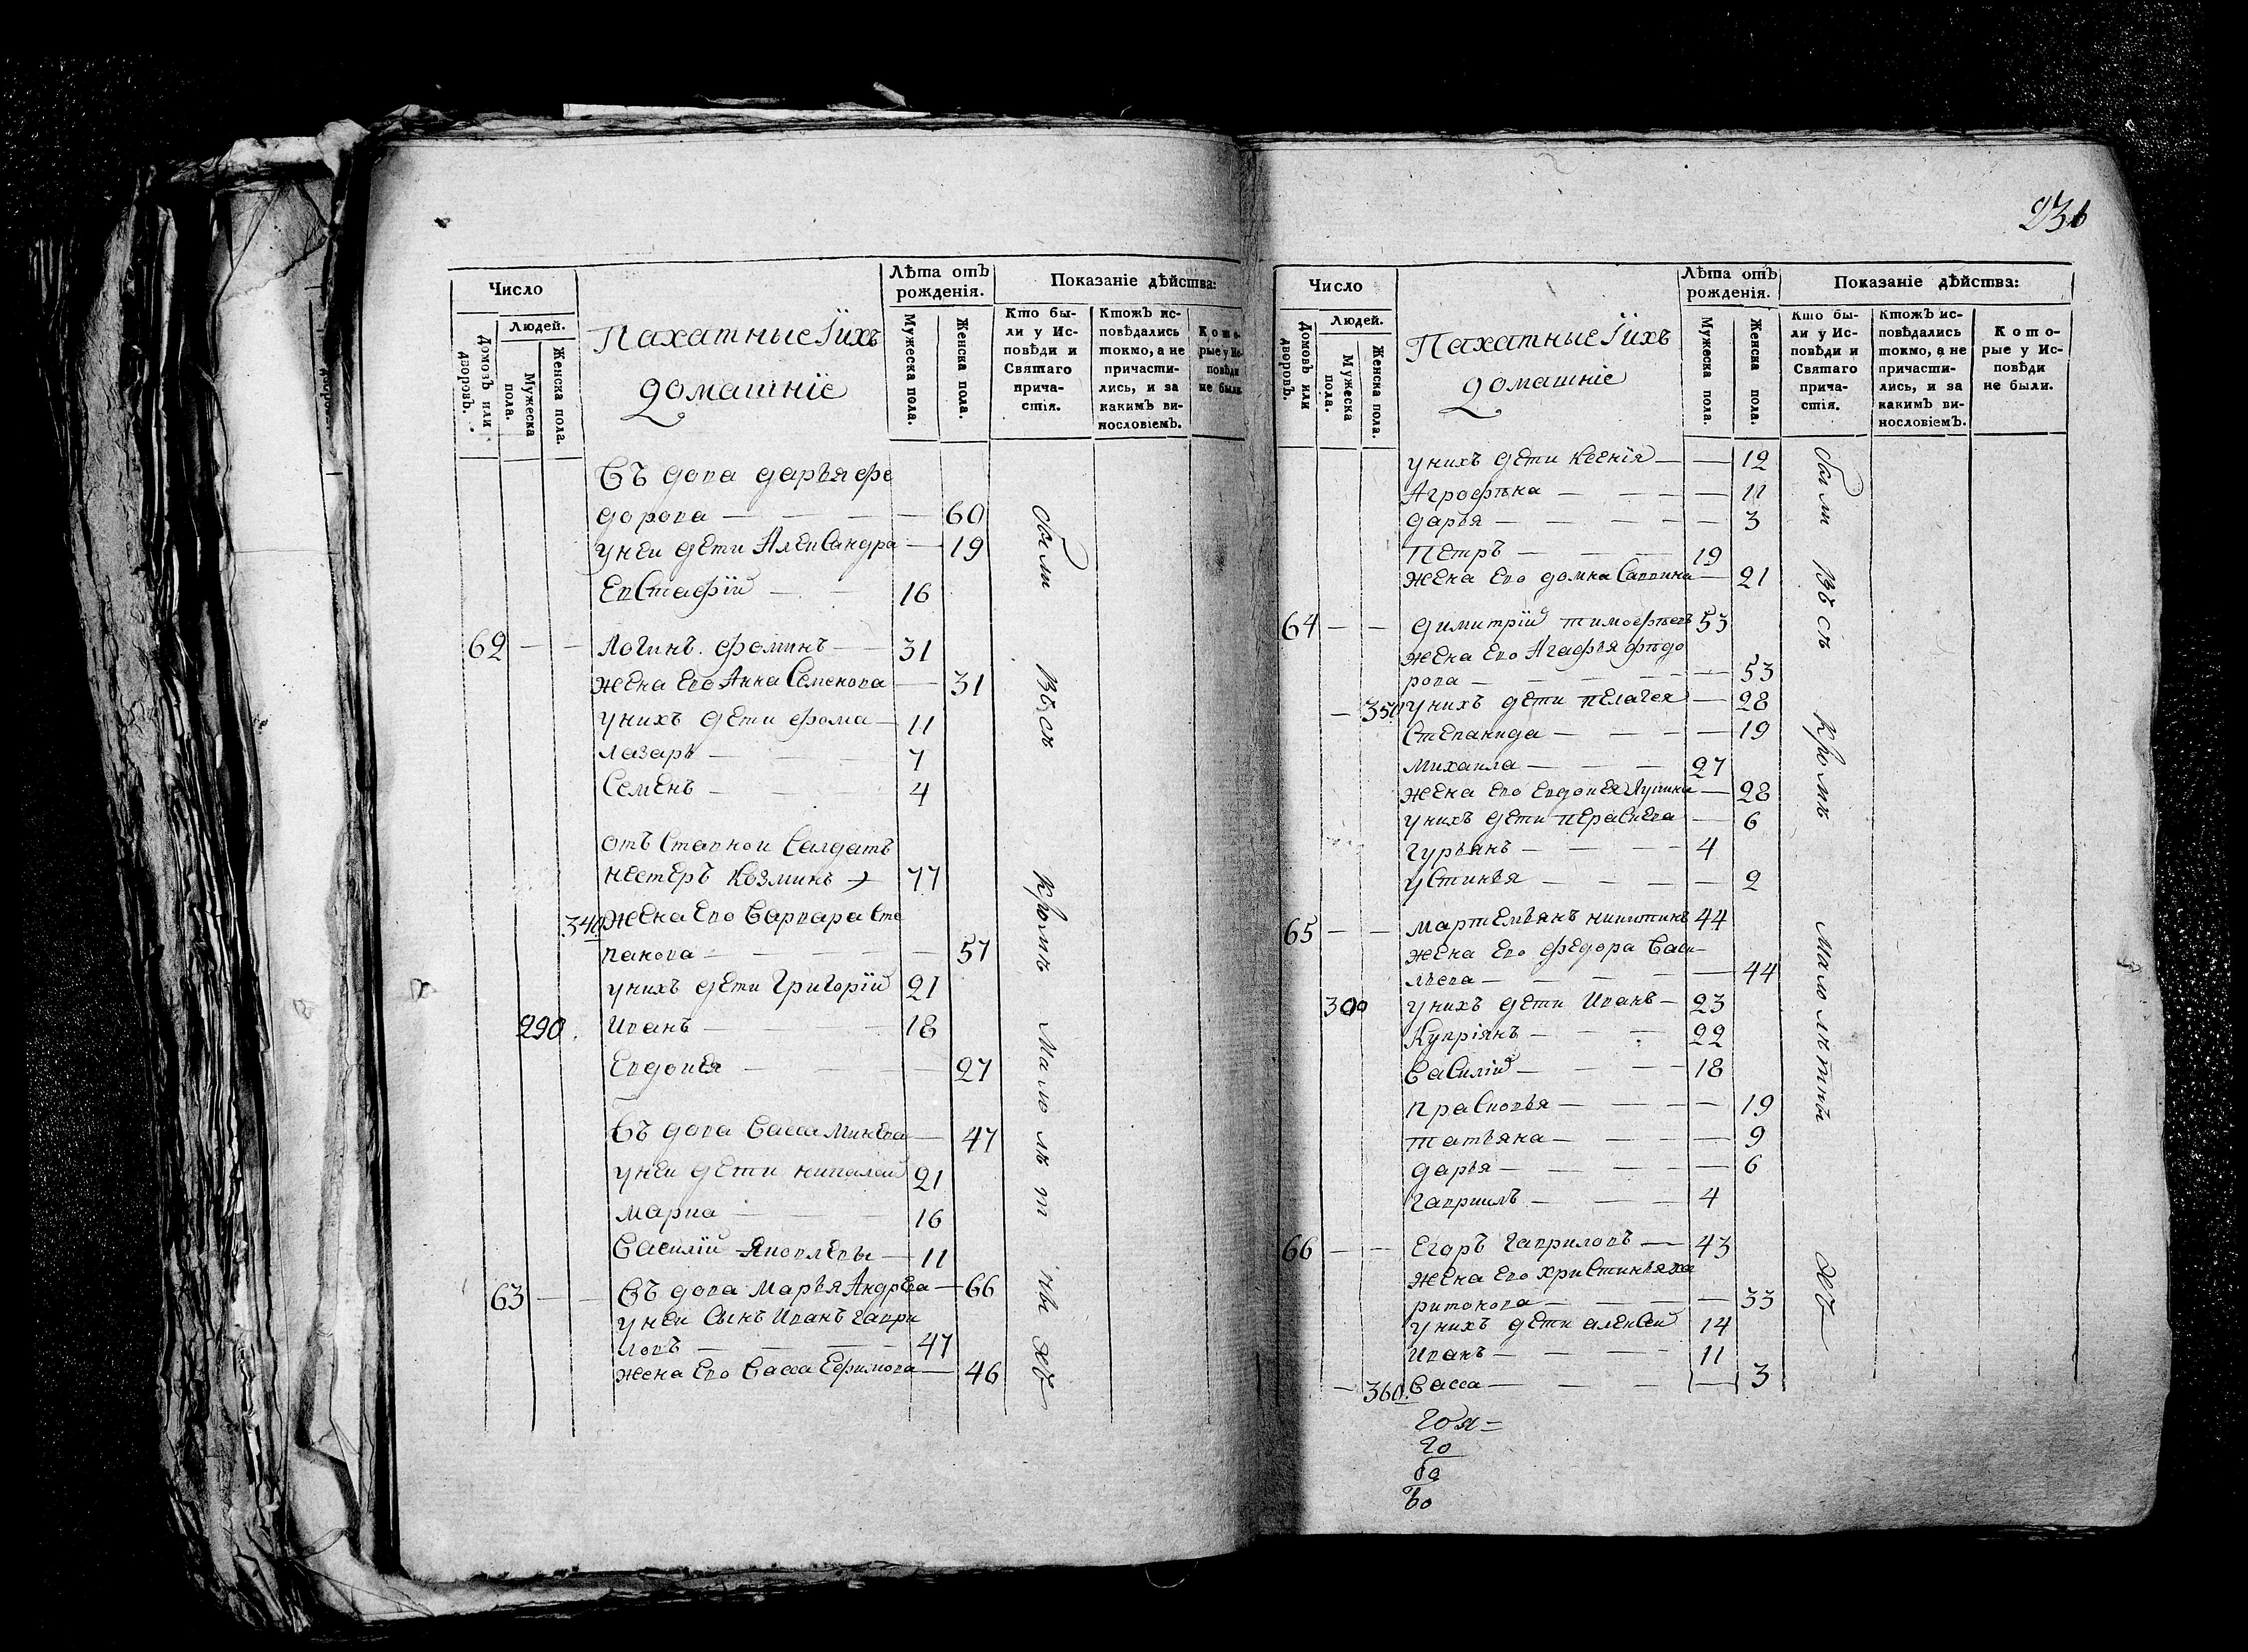 Число
Людей.
Домовъ или дворовъ.
Мужеска пола.
Женска пола.
Пахатные Їихъ
домашнїе
Лѣта отъ рожденія.
Мужеска пола.
Женска пола.
Показаніе дѣйства:
Кто были у Исповѣди и Святаго причастія.
Ктожъ исповѣдались токмо, а не причастились, и за какимъ винословіемъ.
Которые у Исповѣди не были.
Въ дова дарья фе
дорова — — — — 60
уней дети Александра — 19
Евстафїй — — 16
62 — — Логинъ фоминъ — — 31
жена Ево Анна Семенова — 31
унихъ дети фома — 11
лазарь — — — 7
Семенъ — — 4
отъ Ставной Салдатъ
нестеръ Козминъ — 77
340 Жена Ево Варвара Сте
панова — — — — 57
унихъ дети Григорїй 21
290. Иванъ — — — 18
Евдокея — — — 27
Въ дова Васса Минева — 47
уней дети николай 21
Марна — — — 16
Василїй Яковлевы — 11
63 — — Въ дова Марья Андрева — 66
уней Сынъ Иванъ гаври
ловъ — — — — 47
жена Ево Васса Ефимова — 46
были
Всѣ
Кромѣ
Малолѣтныхъ
236
Число
Людей.
Домовъ или дворовъ.
Мужеска пола.
Женска пола.
Пахатные Їихъ
домашнїе
Лѣта отъ рожденія.
Мужеска пола.
Женска пола.
Показаніе дѣйства:
Кто были у Исповѣди и Святаго причастія.
Ктожъ исповѣдались токмо, а не причастились, и за какимъ винословіемъ.
Которые у Исповѣди не были.
унихъ дети Ксенїя — — 12
Агрофѣна — — — — 11
дарья — — — — — 3
Петръ — — — 19
жена Ево домна Саввина — 21
64 — — димитрїй тимофѣевъ 53
жена Ево Агафья фѣдо
рова — — — — — 53
— 350 унихъ дети пелагея — 28
Степанида — — — — 19
михаила — — — 27
жена Ево Евдокея Лукина — 28
унихъ дети параскева — 6
гурьянъ — — — 4
устинья — — — — 2
65 — — мартемьянъ никитинъ 44
жена Ево федора Васи—
льева — — — — 44
300 унихъ дети Иванъ — 23
Купрїянъ — — — 22
Василїй — — — 18
прасковья — — — — 19
татьяна — — — — 9
дарья — — — — — 6
гавриилъ — — — 4
66 — — Егоръ гавриловъ — 43
жена Ево христинья ха
ритонова — — — — 33
унихъ дети алексей 14
Иванъ — — — — 11
— 360. Васса — — — — 3
были
Всѣ
Кромѣ
Малолѣтныхъ